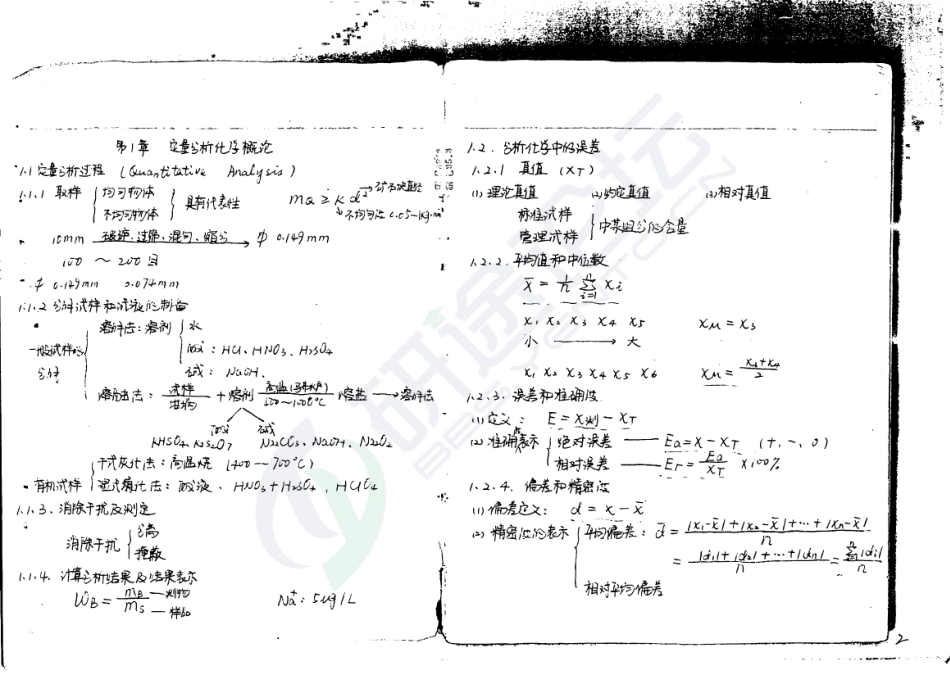 第1章 定量分析化学概论
1.1 定量分析过程 (Quantitative Analysis)
1.1.1 取样 均匀物体 不均匀物体 具有代表性 mQ ≥ kd²
10mm 破碎、过筛、混匀、缩分 → φ 0.149mm
100 ~ 200目
φ 0.149mm 0.074mm
1.1.2 分解试样和试液的制备
一般试样的分解
溶解法:溶剂 水
酸:HCl、HNO₃、H₂SO₄
碱:NaOH、
熔融法:试样 + 溶剂 高温 500~1000℃ 熔盐 → 溶解法
酸 碱
KHSO₄、K₂S₂O₇ Na₂CO₃、NaOH、Na₂O₂
有机试样
干式灰化法:高温烧 (400—700℃)
湿式消化法:酸液、HNO₃+H₂SO₄、HClO₄
1.1.3、消除干扰及测定
消除干扰 分离 掩蔽
1.1.4、计算分析结果及结果表示
WB = mB/mS —测物 —样品 Na⁺:5ug/L
1.2、分析化学中的误差
1.2.1 真值 (XT)
(1) 理论真值 (2) 约定真值 (3) 相对真值
标准试样 管理试样 中某组分的含量
1.2.2、平均值和中位数
x̄ = 1/n Σ xi
i=1
X₁ X₂ X₃ X₄ X₅ XM = X₃
小 → 大
X₁ X₂ X₃ X₄ X₅ X₆ XM = (X₃+X₄)/2
1.2.3、误差和准确度
(1) 定义: E = X测 - XT
(2) 准确度表示 绝对误差 —— Ea = X - XT (+、-、0)
相对误差 —— Er = Ea/XT × 100%
1.2.4、偏差和精密度
(1) 偏差定义: d = x - x̄
(2) 精密度的表示 平均偏差: d̄ = (|x₁-x̄| + |x₂-x̄| + ⋯ + |xn-x̄|)/n
= (|d₁| + |d₂| + ⋯ + |dn|)/n = Σ|di|/n
相对平均偏差
2
研途论坛